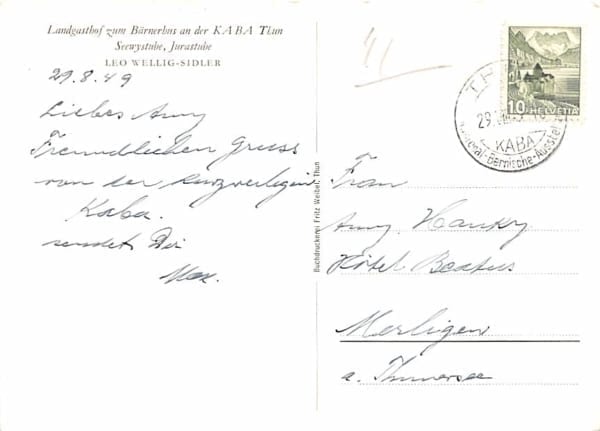 Landgasthof zum Bärnerhus an der KABA Thun
Seewystube, Jurastube
LEO WELLIG-SIDLER
29.8.49
Liebes Anny
Freundlichen Gruss
von der
Kaba.
sendet Dir
Max.
41
10 HELVETIA
THUN
29.VIII.49
KABA
Kantonal-Bernische-Ausstellung
Buchdruckerei Fritz Weibel, Thun
Frau
Anny Hanky
Hôtel Beatus
Merligen
a. Thunersee